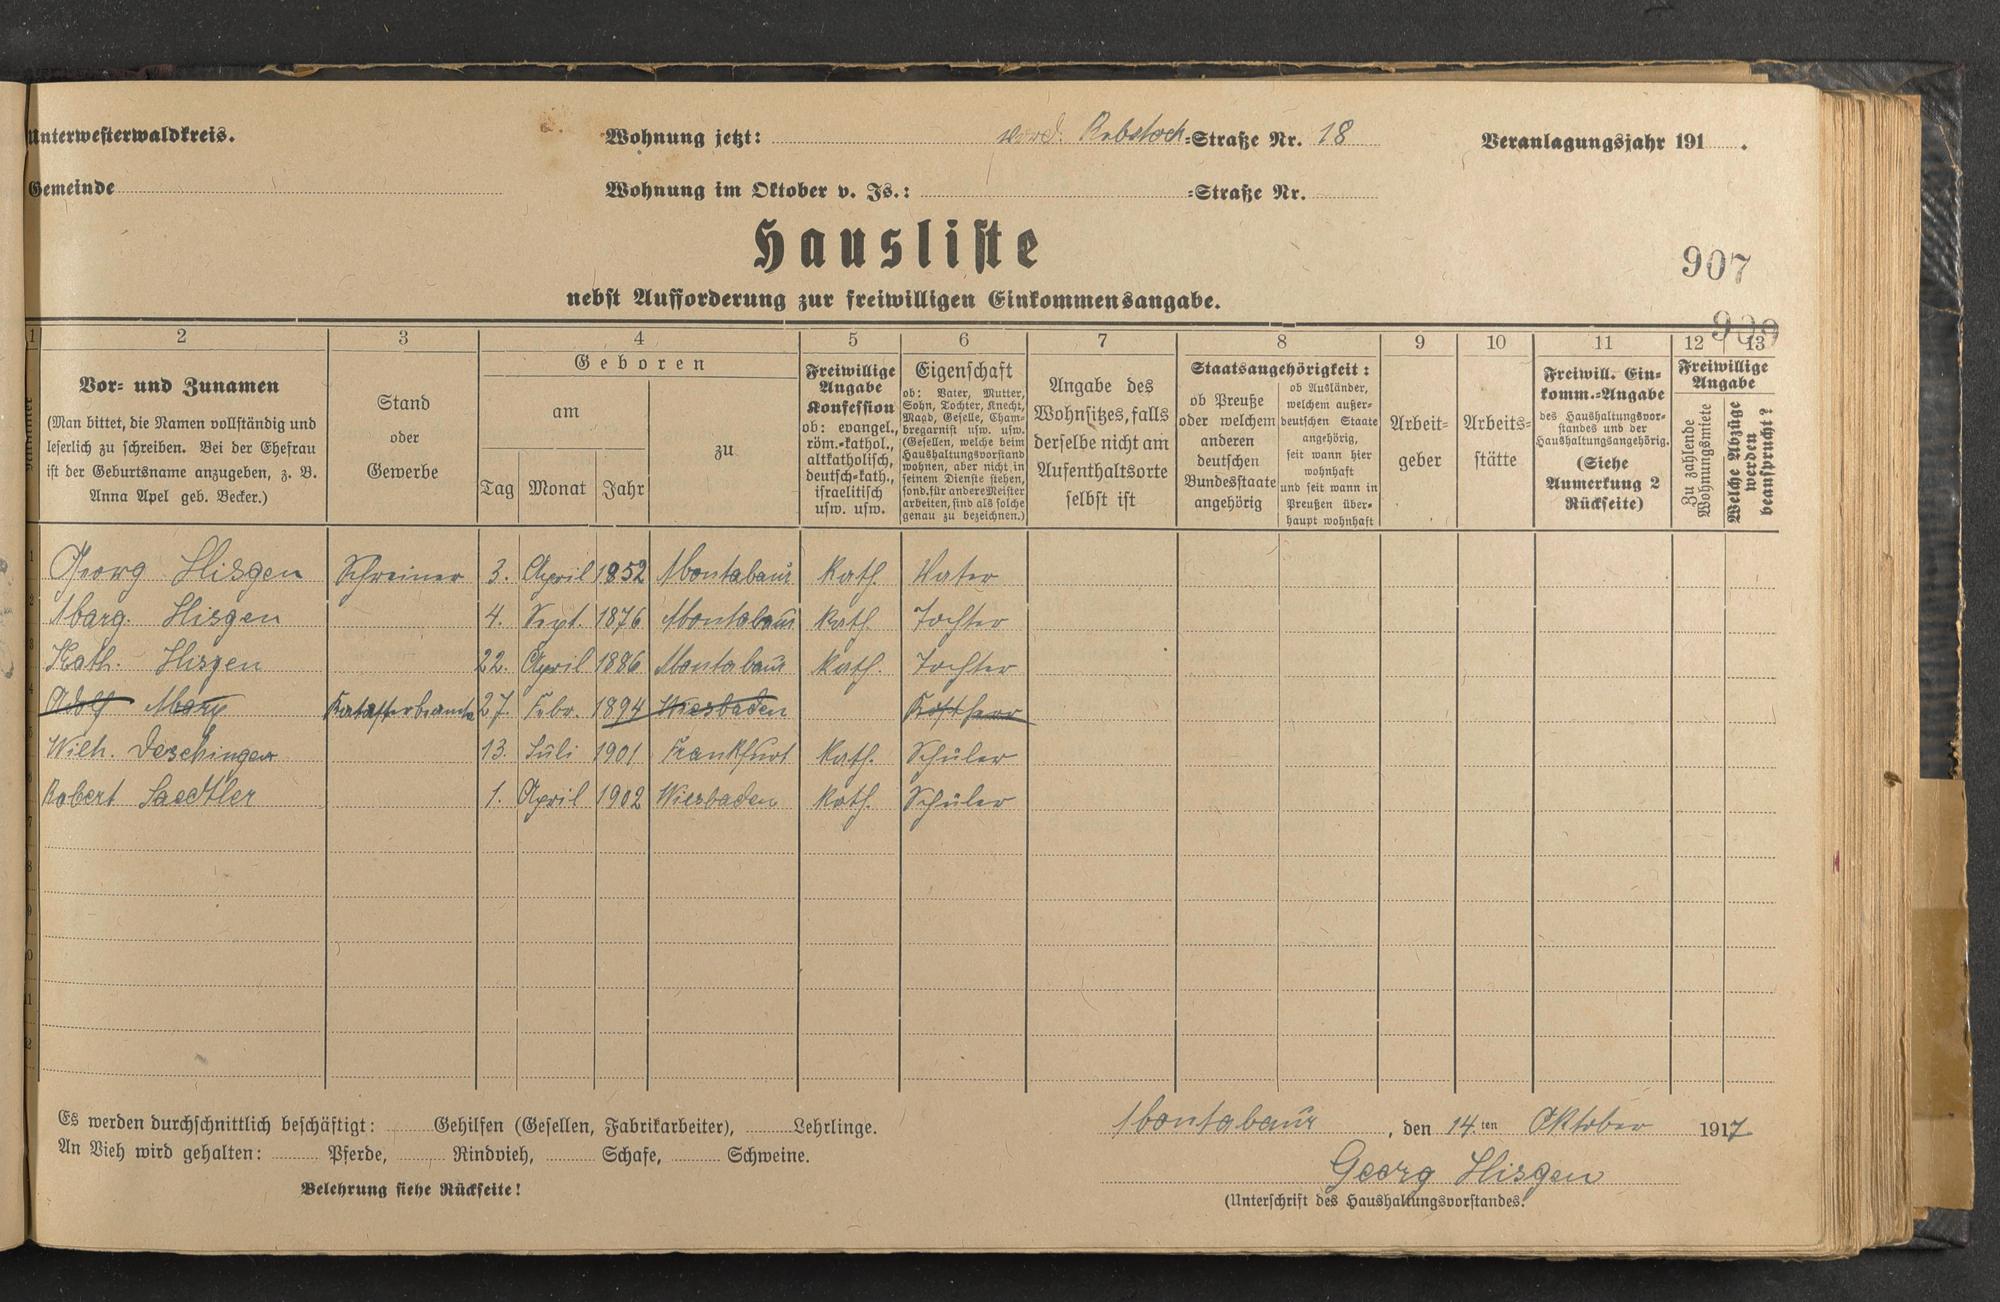 Unterwesterwaldkreis.
Wohnung jetzt: vord. Rebstock-Straße Nr. 18
Veranlagungsjahr 191 .
Gemeinde
Wohnung im Oktober v. Js.: -Straße Nr.
Hausliste
907
nebst Aufforderung zur freiwilligen Einkommensangabe.
1 2 3 4 5 6 7 8 9 10 11 12 13
Vor- und Zunamen
(Man bittet, die Namen vollständig und
leserlich zu schreiben. Bei der Ehefrau
ist der Geburtsname anzugeben, z. B.
Anna Apel geb. Becker.)
Stand
oder
Gewerbe
Geboren
am
Tag Monat Jahr
zu
Freiwillige
Angabe
Konfession
ob: evangel.,
röm.-kathol.,
altkatholisch,
deutsch-kath.,
israelitisch
usw. usw.
Eigenschaft
ob: Vater, Mutter,
Sohn, Tochter, Knecht,
Magd, Geselle, Cham-
bregarnist usw. usw.
(Gesellen, welche beim
Haushaltungsvorstand
wohnen, aber nicht in
seinem Dienste stehen,
sond. für andere Meister
arbeiten, sind als solche
genau zu bezeichnen.)
Angabe des
Wohnsitzes, falls
derselbe nicht am
Aufenthaltsorte
selbst ist
Staatsangehörigkeit:
ob Preuße
oder welchem
anderen
deutschen
Bundesstaate
angehörig
ob Ausländer,
welchem außer-
deutschen Staate
angehörig,
seit wann hier
wohnhaft
und seit wann in
Preußen über-
haupt wohnhaft
Arbeit-
geber
Arbeits-
stätte
Freiwill. Ein-
komm.-Angabe
des Haushaltungsvor-
standes und der
Haushaltungsangehörig.
(Siehe
Anmerkung 2
Rückseite)
Freiwillige
Angabe
Zu zahlende
Wohnungsmiete
Welche Abzüge
werden
beansprucht?
1 Georg Hisgen Schreiner 3. April 1852 Montabaur Kath. Vater
2 Marg. Hisgen 4. Sept. 1876 Montabaur Kath. Tochter
3 Kath. Hisgen 22. April 1886 Montabaur Kath. Tochter
4 Adolf Katasterbeamte 27. Febr. 1894 Wiesbaden Kostherr
5 Wilh. Deschinger 13. Juli 1901 Frankfurt Kath. Schüler
6 Robert Saedtler 1. April 1902 Wiesbaden Kath. Schüler
7
8
9
10
11
12
Es werden durchschnittlich beschäftigt: Gehilfen (Gesellen, Fabrikarbeiter), Lehrlinge.
An Vieh wird gehalten: Pferde, Rindvieh, Schafe, Schweine.
Belehrung siehe Rückseite!
Montabaur, den 14.ten Oktober 1917
Georg Hisgen
(Unterschrift des Haushaltungsvorstandes.